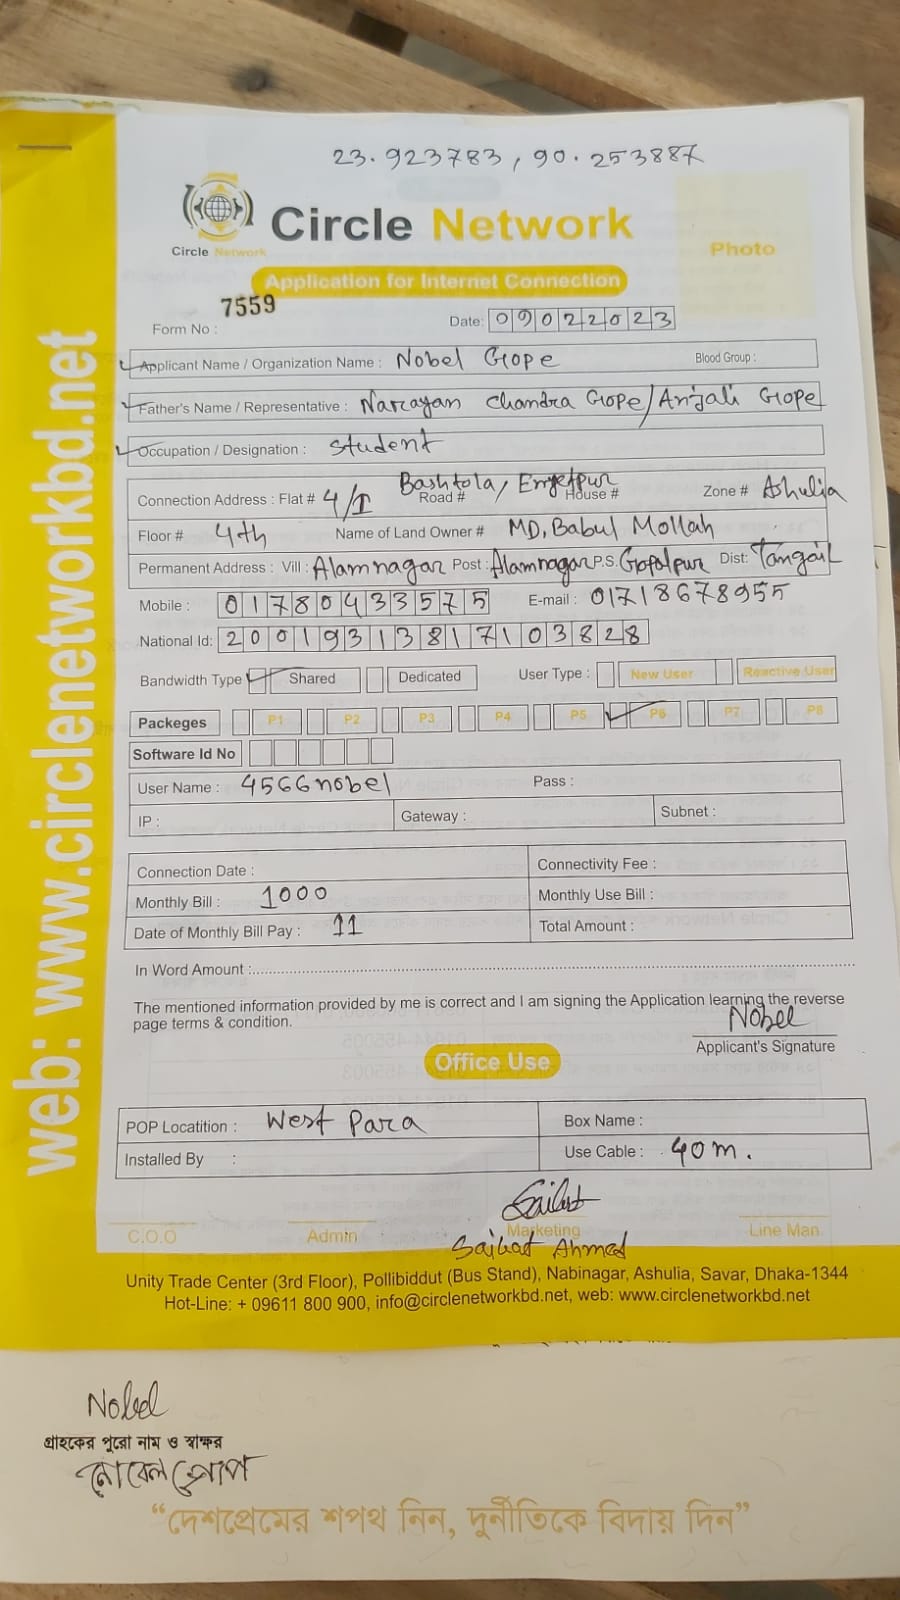 23.923783, 90.253887
Circle Network
Circle Network
Photo
Application for Internet Connection
7559
Form No :
Date: 09022023
Applicant Name / Organization Name : Nobel Gope Blood Group :
Father's Name / Representative : Narayan Chandra Gope/Anjali Gope
Occupation / Designation : Student
Connection Address : Flat # 4/I Road # Bashtola, House # Zone # Ashulia
Floor # 4th Name of Land Owner # MD. Babul Mollah
Permanent Address : Vill : Alamnagar Post : Alamnagar P.S. Gopalpur Dist: Tangail
Mobile : 01780433575 E-mail : 01718678955
National Id: 20019313817103828
Bandwidth Type Shared Dedicated User Type : New User Reactive User
Packeges P1 P2 P3 P4 P5 P6 P7 P8
Software Id No
User Name : 4566nobel Pass :
IP : Gateway : Subnet :
Connection Date : Connectivity Fee :
Monthly Bill : 1000 Monthly Use Bill :
Date of Monthly Bill Pay : 11 Total Amount :
In Word Amount :
The mentioned information provided by me is correct and I am signing the Application learning the reverse
page terms & condition.
Nobel
Applicant's Signature
Office Use
POP Locatition : West Para Box Name :
Installed By : Use Cable : 40 m.
C.O.O Admin Marketing Line Man
Ahmed
Unity Trade Center (3rd Floor), Pollibiddut (Bus Stand), Nabinagar, Ashulia, Savar, Dhaka-1344
Hot-Line: + 09611 800 900, info@circlenetworkbd.net, web: www.circlenetworkbd.net
web: www.circlenetworkbd.net
Nobel
গ্রাহকের পুরো নাম ও স্বাক্ষর
নোবেল গোপ
“দেশপ্রেমের শপথ নিন, দুর্নীতিকে বিদায় দিন”